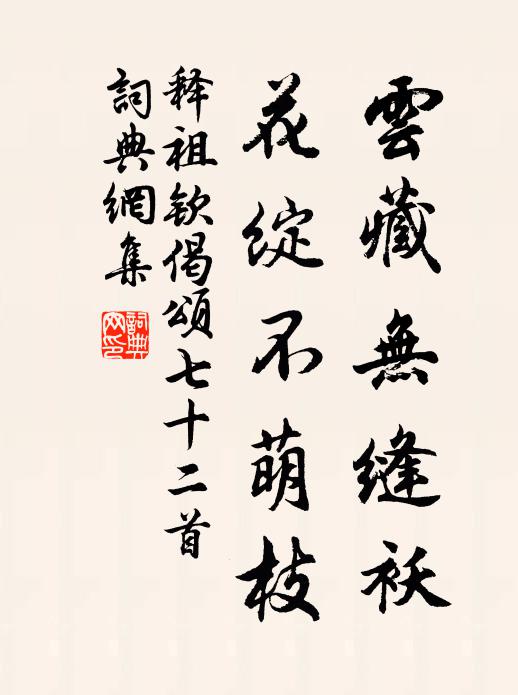 雲藏無縫袄
花綻不萌枝
释祖钦偈頌七十二首
詞典網集
詞典網印